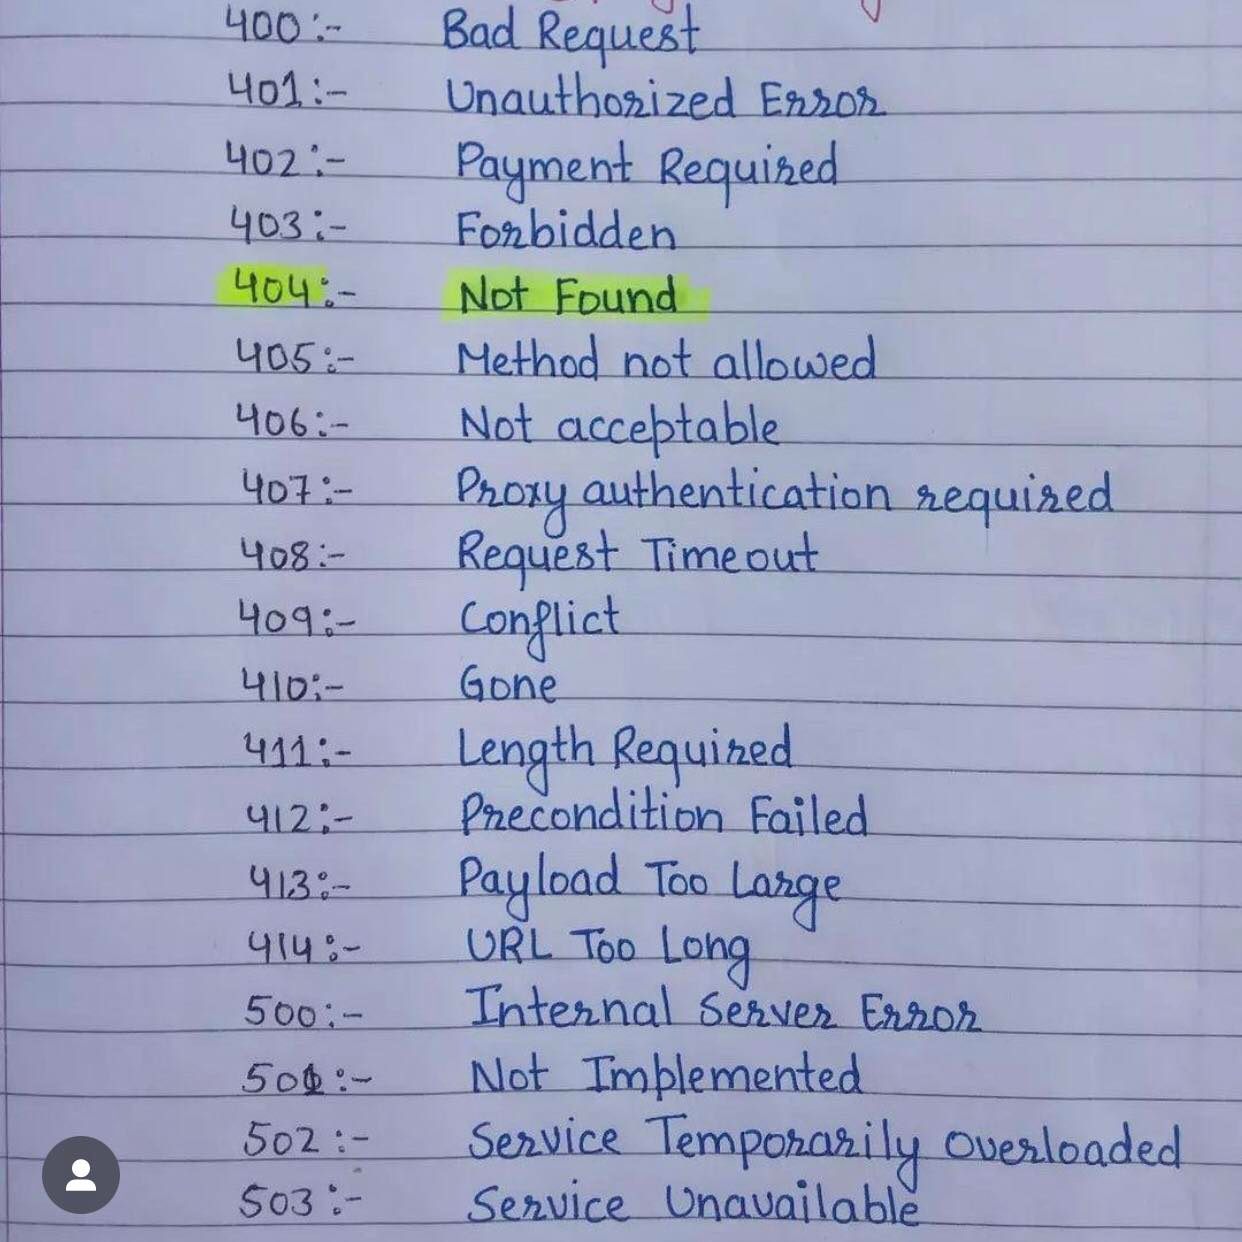 400:- Bad Request
401:- Unauthorized Error
402:- Payment Required
403:- Forbidden
404:- Not Found
405:- Method not allowed
406:- Not acceptable
407:- Proxy authentication required
408:- Request Timeout
409:- Conflict
410:- Gone
411:- Length Required
412:- Precondition Failed
413:- Payload Too Large
414:- URL Too Long
500:- Internal Server Error
501:- Not Implemented
502:- Service Temporarily Overloaded
503:- Service Unavailable